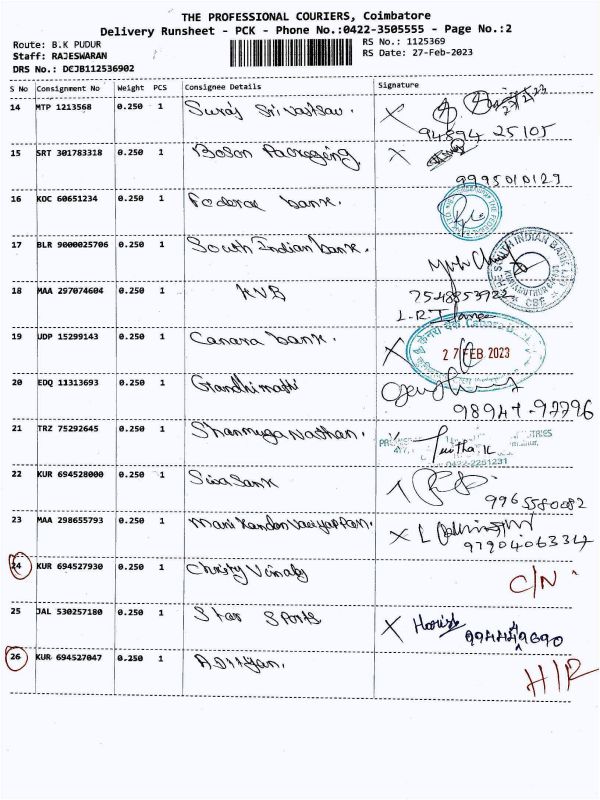 THE PROFESSIONAL COURIERS, Coimbatore
Delivery Runsheet - PCK - Phone No.:0422-3505555 - Page No.:2
Route: B.K PUDUR
RS No.: 1125369
Staff: RAJESWARAN
RS Date: 27-Feb-2023
DRS No.: DCJB112536902
S No Consignment No Weight PCS Consignee Details Signature
14 MTP 1213568 0.250 1 Suraj Srivastav.
94594 25105
15 SRT 301783318 0.250 1 Boson Packaging
9995010129
16 KOC 60651234 0.250 1 Federal bank.
17 BLR 9000025706 0.250 1 South Indian bank.
THE SOUTH INDIAN BANK LTD
18 MAA 297074604 0.250 1 KVB
7548853722
19 UDP 15299143 0.250 1 Canara bank.
27 FEB 2023
20 EDQ 11313693 0.250 1 Gandhimathi
98947-97796
21 TRZ 75292645 0.250 1 Shanmuganathan.
22 KUR 694528000 0.250 1 Siva Sank
9965580082
23 MAA 298655793 0.250 1 Manikandan
9790406334
24 KUR 694527930 0.250 1 Christy
C/N
25 JAL 530257180 0.250 1 Star Sports
Harish
26 KUR 694527047 0.250 1